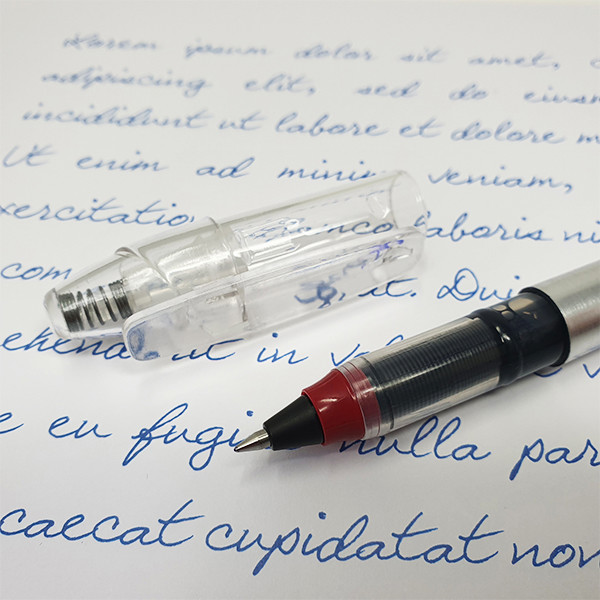 Lorem ipsum dolor sit amet,
adipiscing elit, sed do eiusm
incididunt ut labore et dolore m
Ut enim ad minim veniam,
xercitatio laboris ni
com Dui
ehend ut in v
e eu fugi nulla par
caecat cupidatat non